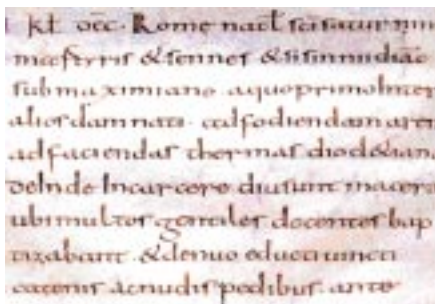 kł decƀ. Rome nat̄ sc̄i saturnini
mar̄ senis & sisinnii diac̄
sub maximiano. a quo primo inter
alios damnati. ad fodiendam aren
ad faciendas thermas diocletian
deinde in carcere diu sunt macera
ubi multos gentiles docentes bap
tizabant. & denuo educti uincti
catenis ac nudis pedibus. ante